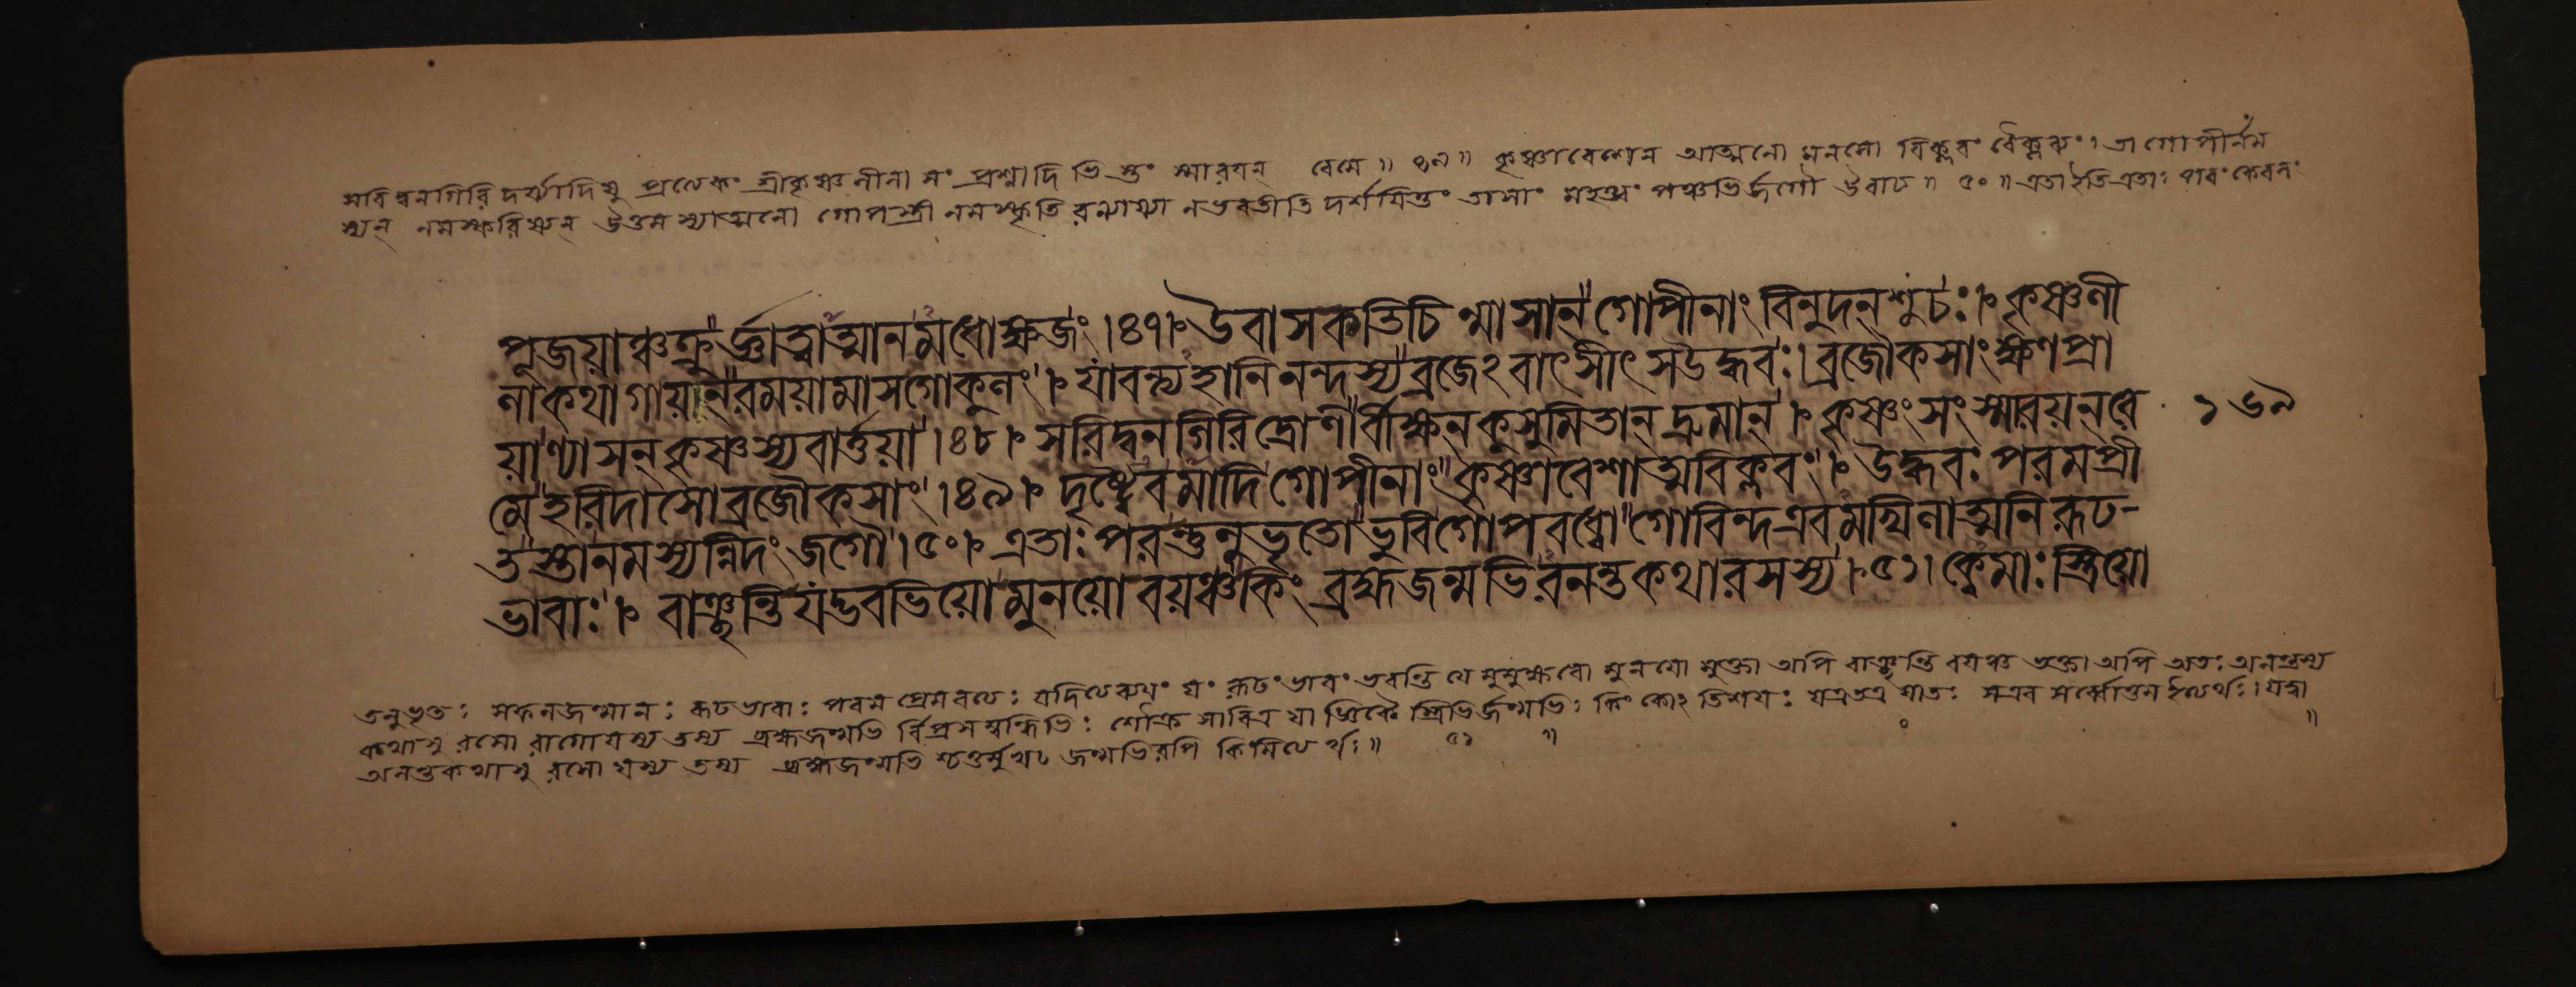 সরিদ্বনগিরিদর্য্যাদিষু প্রত্যেকং শ্রীকৃষ্ণলীলানাং প্রশ্নাদিভিস্তং স্মারয়ন্ রেমে ॥ ৪৯ ॥ কৃষ্ণাবেশেন আত্মনো মনসো বিক্লবং বৈক্লব্যং । তা গোপীর্নম
স্যন্ নমস্করিষ্যন্ উত্তমস্যাত্মনো গোপস্ত্রীনমস্কৃতিরন্যায্যা নভবতীতি দর্শয়িতুং তাসাং মহত্ত্বং পঞ্চভির্জগৌ উবাচ ॥ ৫০ ॥ এতাইতি এতাঃ পরং কেবলং
পূজয়াঞ্চক্রুর্জ্ঞাত্বাত্মানমধোক্ষজং ।৪৭। উবাসকতিচিন্মাসান্ গোপীনাং বিনুদন্ শুচঃ । কৃষ্ণলী
লাকথাগায়ন্ রময়ামাসগোকুলং । যাবন্ত্যহানিনন্দস্যব্রজেঽবাৎসীৎ সউদ্ধবঃ। ব্রজৌকসাংক্ষণপ্রা
য়াণ্যাসন্ কৃষ্ণস্যবার্ত্তয়া ।৪৮। সরিদ্বনগিরিদ্রোণীর্বীক্ষন্ কুসুমিতান্ দ্রুমান্ । কৃষ্ণংসংস্মারয়ন্ রে ১৬৯
মেহরিদাসোব্রজৌকসাং ।৪৯। দৃষ্ট্বৈবমাদিগোপীনাং কৃষ্ণাবেশাত্মবিক্লবং । উদ্ধবঃ পরমপ্রী
তস্তানমস্যন্নিদং জগৌ ।৫০। এতাঃ পরন্তনুভৃতোভুবিগোপবধ্বোগোবিন্দএবমখিলাত্মনিরূঢ-
ভাবাঃ । বাঞ্ছন্তিযদ্ভবভিয়োমুনয়োবয়ঞ্চকিং ব্রহ্মজন্মভিরনন্তকথারসস্য ।৫১। ক্বেমাঃ স্ত্রিয়ো
তনুভৃতঃ সফলজন্মানঃ রূঢভাবাঃ পরমপ্রেমবত্যঃ যদিত্যব্যয়ং যং রূঢং ভাবং ভবন্তি যে মুমুক্ষবো মুনয়ো মুক্তা অপি বাঞ্ছন্তি বয়ঞ্চ ভক্তা অপি অতঃ অনন্তস্য
কথাসু রসো রাগোযস্য তস্য ব্রহ্মজন্মভির্বিপ্রসম্বন্ধিভিঃ শৌক্র সাবিত্র যাজ্ঞিকৈ স্ত্রিভির্জন্মভিঃ কিং কোঽতিশয়ঃ যত্রতত্র যাতঃ সএব সর্ব্বোত্তমইত্যর্থঃ। যদ্বা
অনন্তকথাসু রসো যস্য তস্য ব্রহ্মজন্মভিশ্চতুর্মুখজন্মভিরপি কিমিত্যর্থঃ ॥ ৫১ ॥